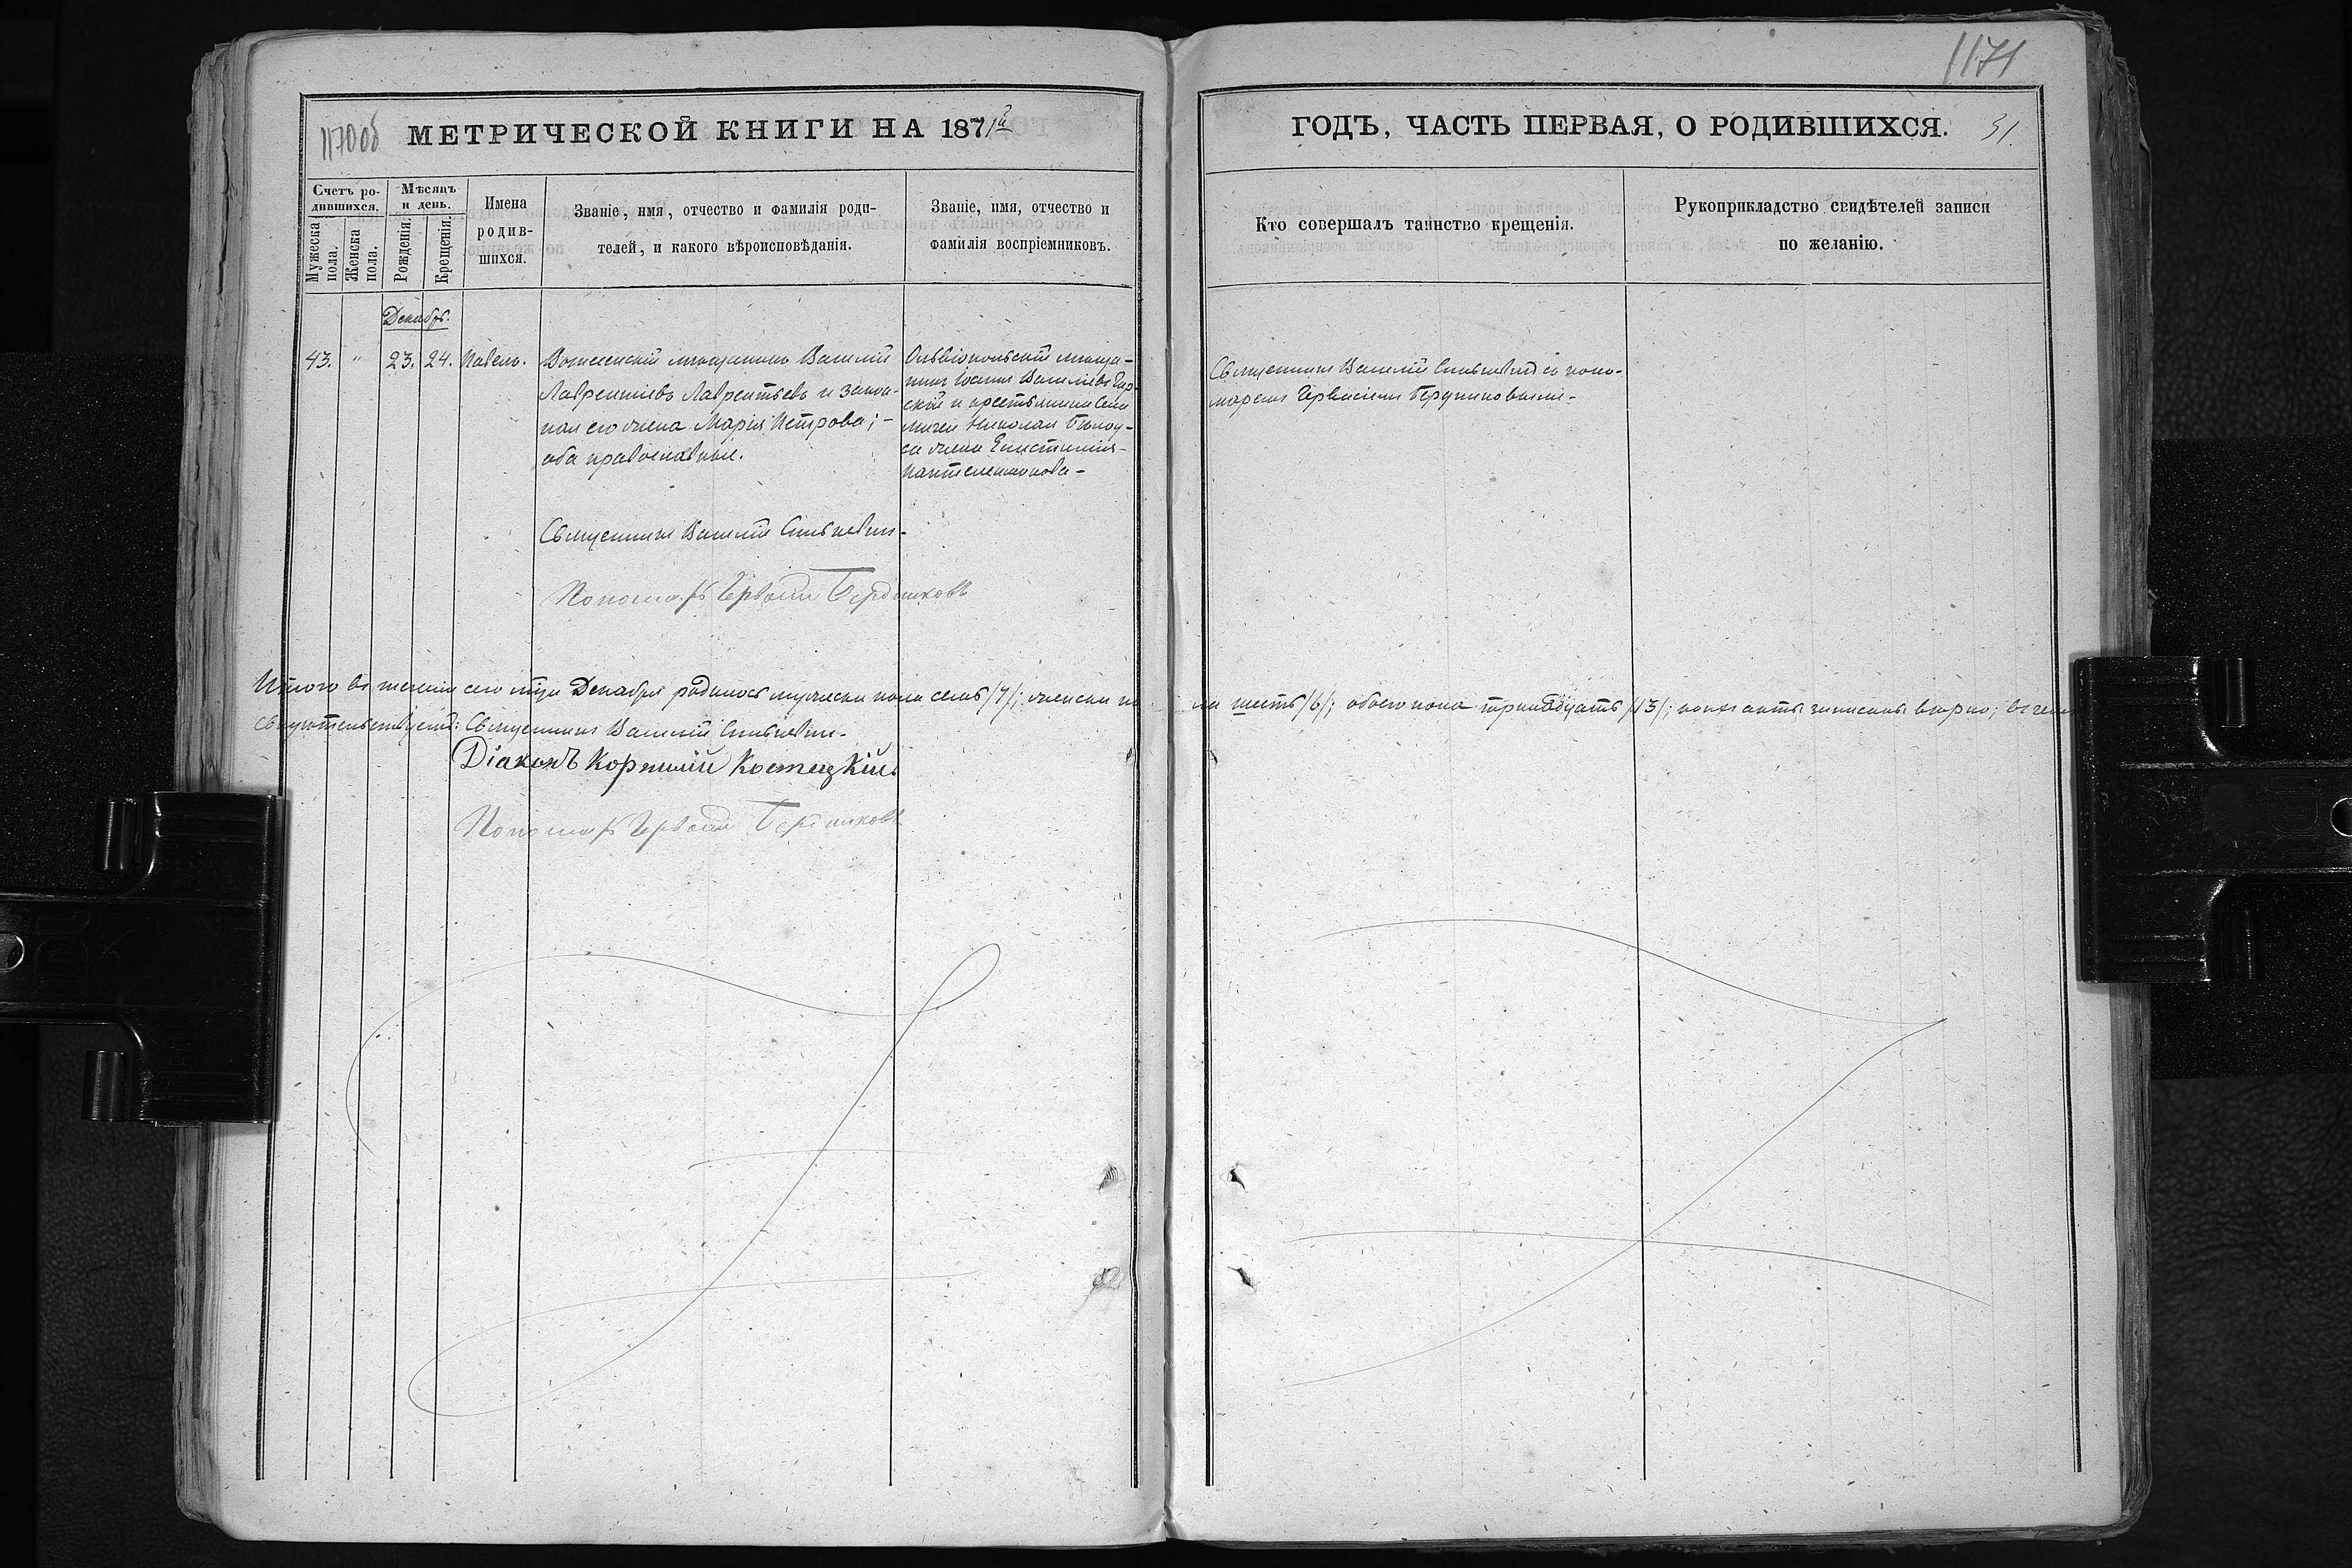 1171
1170об
МЕТРИЧЕСКОЙ КНИГИ НА 1871й
ГОДЪ, ЧАСТЬ ПЕРВАЯ, О РОДИВШИХСЯ.
31.
Счетъ родившихся.
Мужеска пола.
Женска пола.
Мѣсяцъ и день.
Рожденія.
Крещенія.
Имена
родив-
шихся.
Званіе, имя, отчество и фамилія роди-
телей, и какого вѣроисповѣданія.
Званіе, имя, отчество и
фамилія воспріемниковъ.
Кто совершалъ таинство крещенія.
Рукоприкладство свидѣтелей записи
по желанію.
Декабрь.
43. " 23. 24. Павелъ.
Вознесенскій мѣщанинъ Василій
Лаврентіевъ Лаврентьевъ и закон-
ная его жена Марія Петрова; -
оба православные.
Ольвіопольскій мѣща-
нинъ Іоаннъ Василіевъ
скій и крестьянина
Николая
са жена
Пантелеимонова -
Священникъ Василій съ поно-
маремъ
Священникъ Василій
Пономарь Бердниковъ
Итого въ теченіи сего мца Декабря родилось мужеска пола семь /7/; женска по-
ла шесть /6/; обоего пола тринадцать /13/; акты записаны вѣрно; въ чемъ
свидѣтельствуемъ: Священникъ Василій
Діаконъ Корнилій Костецкій.
Пономарь Бердниковъ